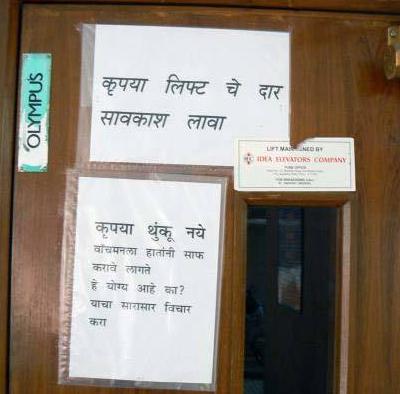 OLYMPUS
कृपया लिफ्ट चे दार
सावकाश लावा
LIFT MAINTAINED BY
IDEA ELEVATORS COMPANY
कृपया थुंकू नये
वॉचमनला हातांनी साफ
करावे लागते
हे योग्य आहे का?
याचा सारासार विचार
करा